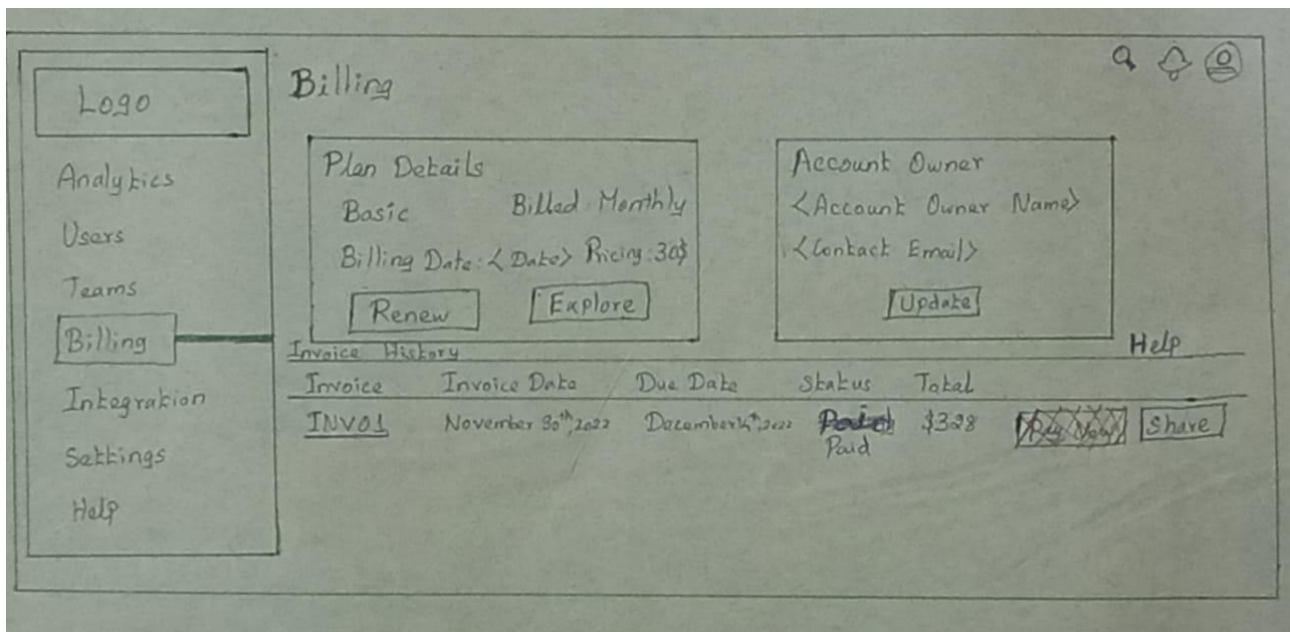 Logo
Analytics
Users
Teams
Billing
Integration
Settings
Help
Billing
Plan Details
Basic Billed Monthly
Billing Date: <Date> Pricing: 30$
Renew Explore
Account Owner
<Account Owner Name>
<Contact Email>
Update
Invoice History Help
Invoice Invoice Date Due Date Status Total
INV01 November 30th, 2022 2022 $328 Share
Paid